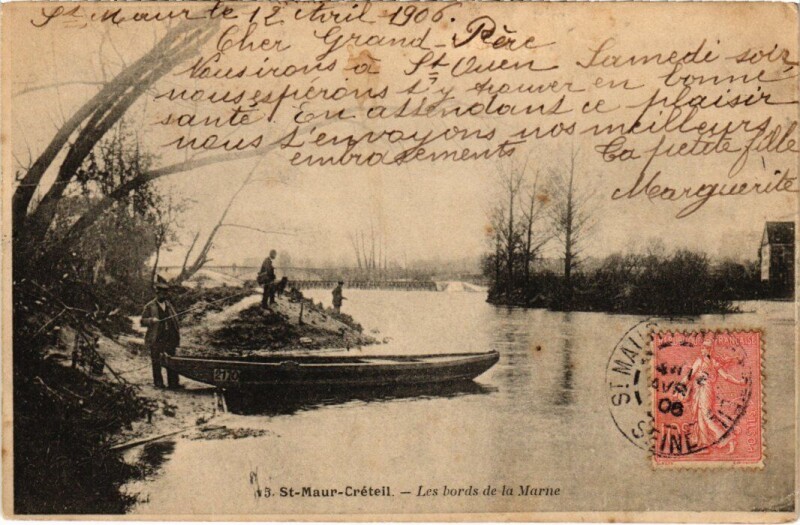 St Maur le 12 Avril 1906.
Cher Grand-Père
Nous irons à St Ouen Samedi soir
nous espérons t'y trouver en bonne
santé. En attendant ce plaisir
nous t'envoyons nos meilleurs
embrassements
Ta petite fille
Marguerite
2170
ST MAUR
AVR
06
SEINE
13. St-Maur-Créteil. — Les bords de la Marne